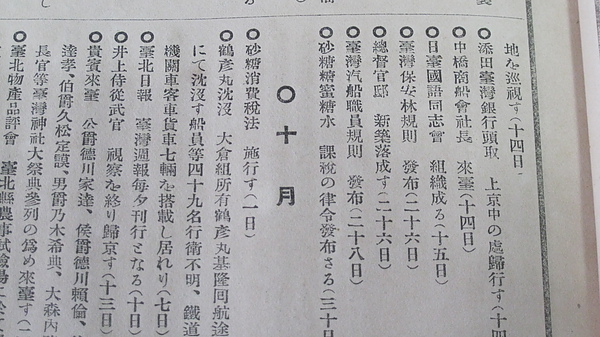 地を巡視す(十四日)
◎添田臺灣銀行頭取 上京中の處歸行す(十四
◎中橋商船會社長 來臺(十四日)
◎日臺國語同志會 組織成る(十五日)
◎臺灣保安林規則 發布(二十六日)
◎總督官邸 新築落成す(二十六日)
◎臺灣汽船職員規則 發布(二十八日)
◎砂糖糖蜜糖水 課稅の律令發布さる(三十日
〇十月
◎砂糖消費稅法 施行す(一日)
◎鶴彦丸沈沒 大倉組所有鶴彦丸基隆回航途
にて沈沒す船員等四十九名行衛不明、鐵道
機關車客車貨車七輛を搭載し居れり(七日)
◎臺北日報 臺灣週報每夕刊行となる(十日)
◎井上侍從武官 視察を終り歸京す(十三日)
◎貴賓來臺 公爵德川家達、侯爵德川賴倫、
達孝、伯爵久松定謨、男爵乃木希典、大森內
長官等臺灣神社大祭典參列の爲め來臺す(二
◎臺北物產品評會 臺北縣農事試驗場に於て